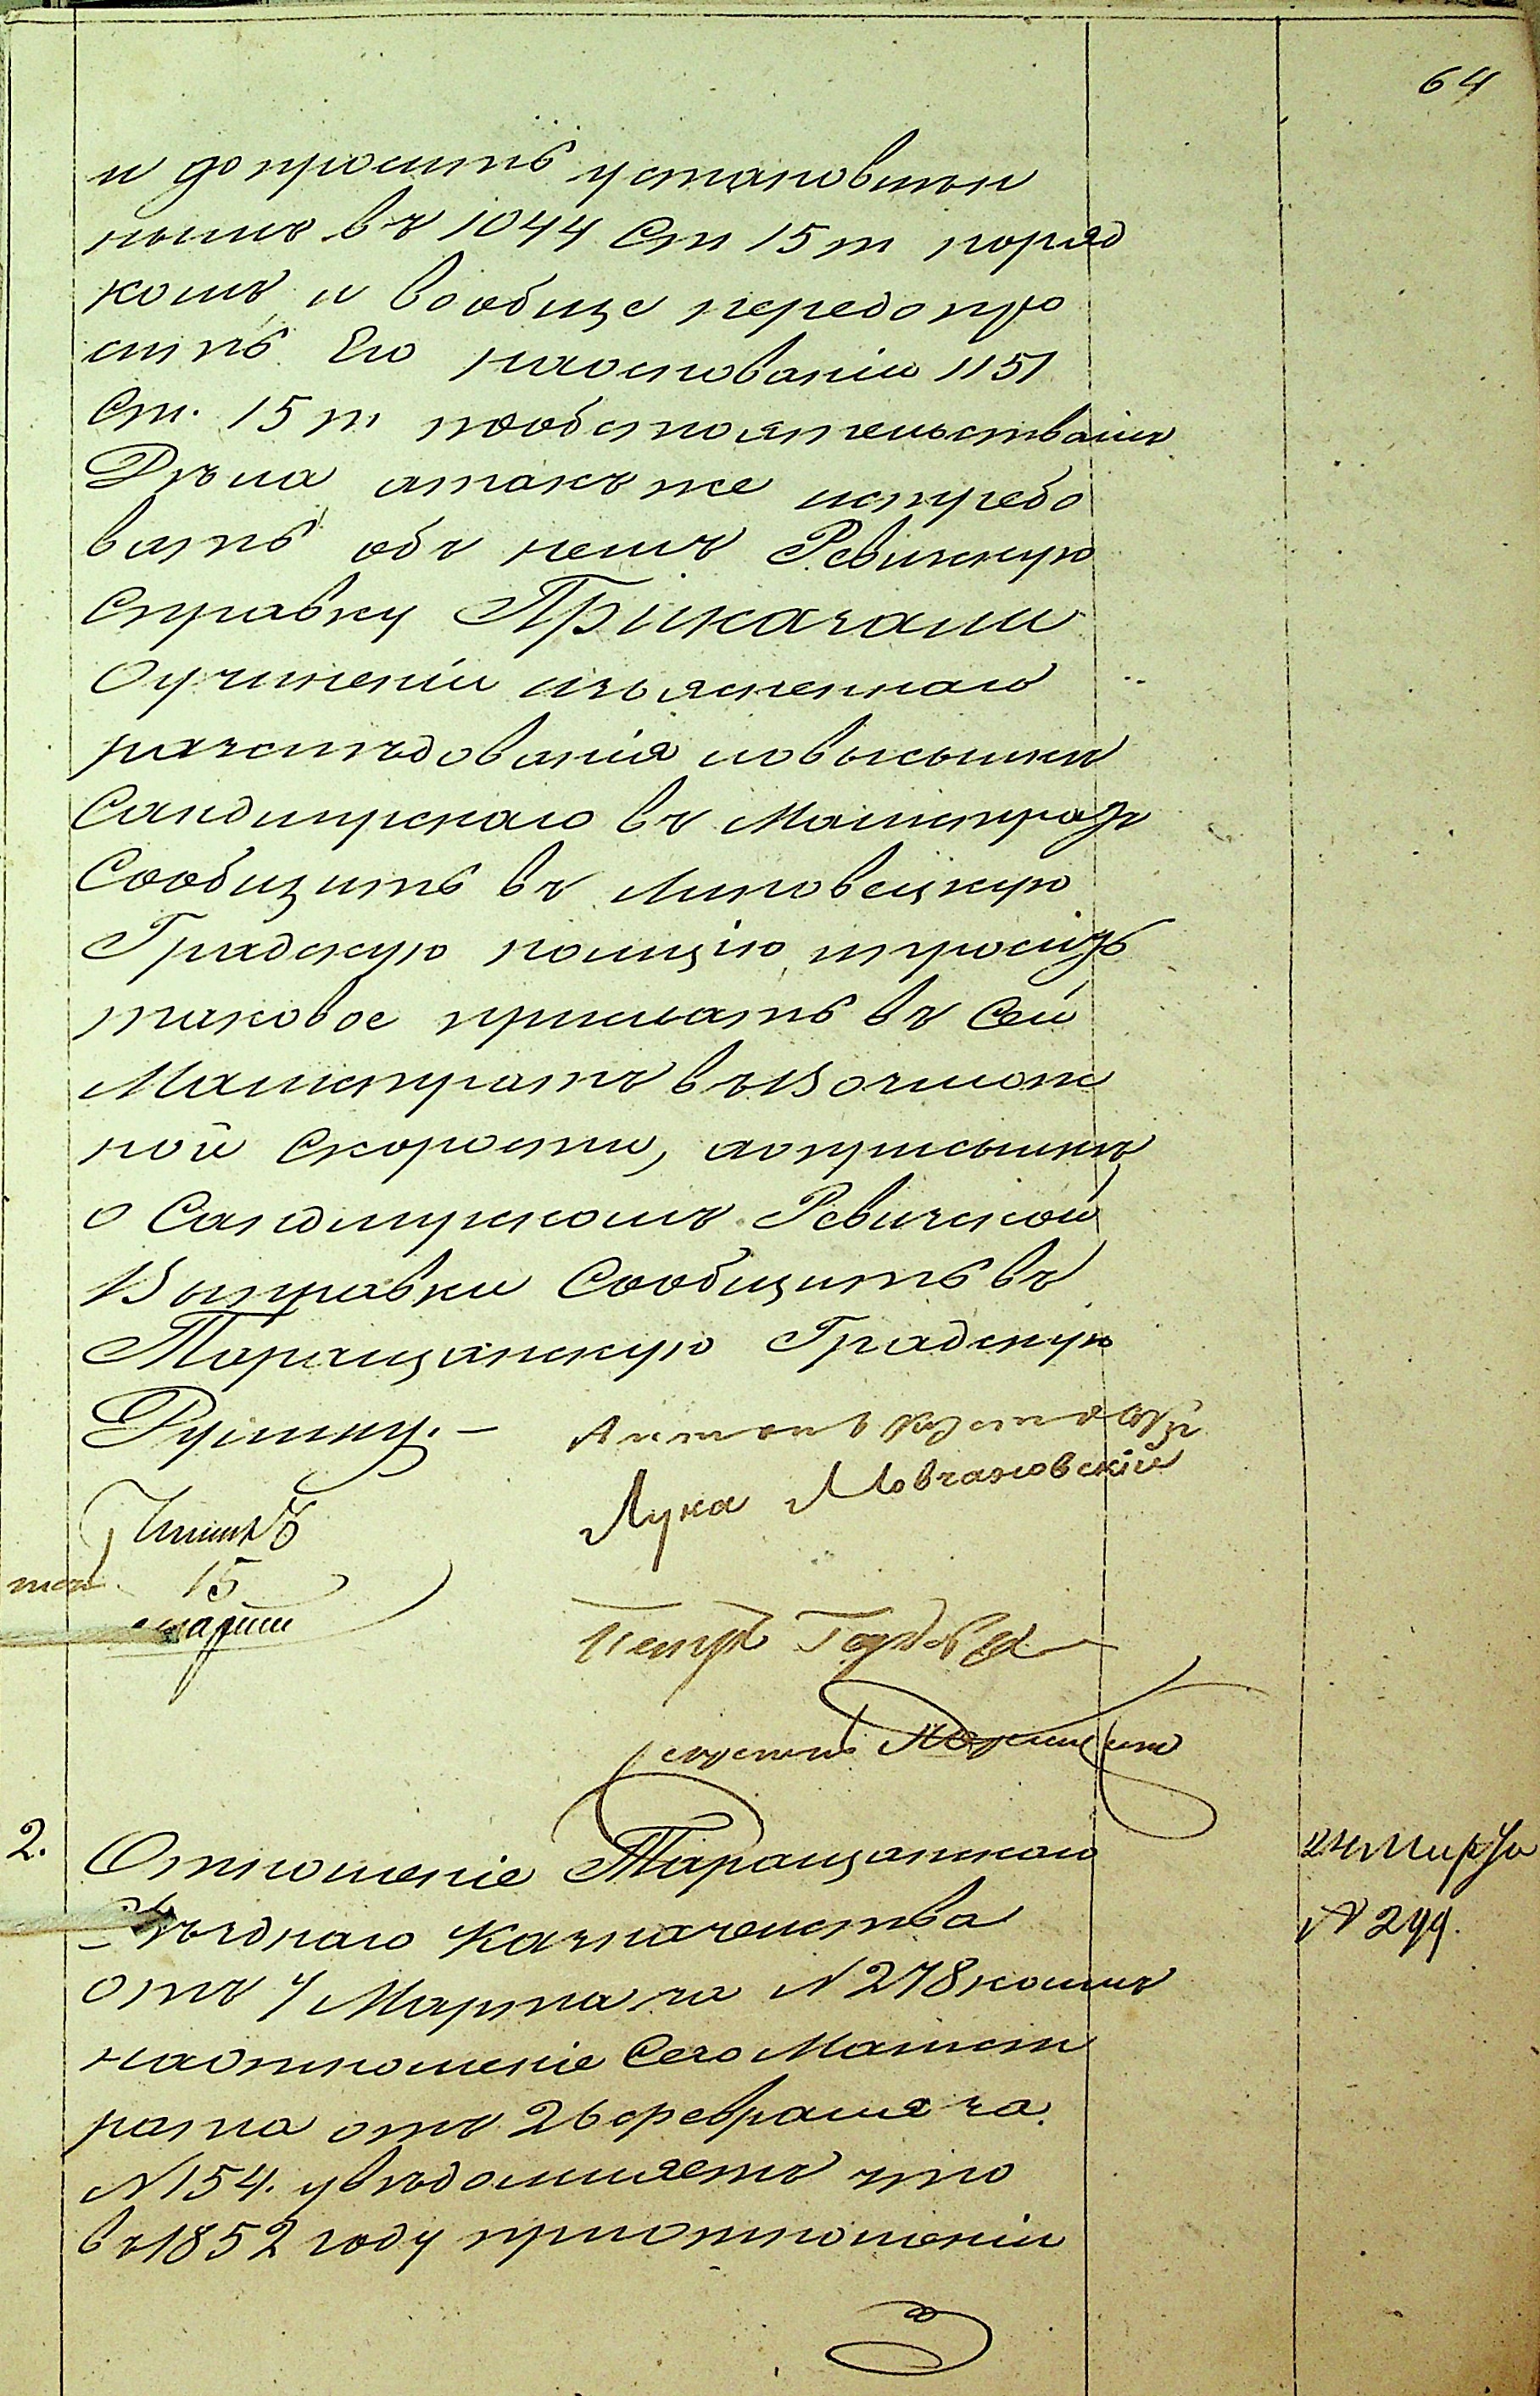 64
и допросить установлен
нымъ въ 1044 Ст 15 т поряд
комъ, и вообще передопро
сить Его наоснованіи 1151
Ст. 15 т. пообстоятельствамъ
Дѣла атакъ же истребо
вать объ немъ Ревизскую
Справку Приказали
Оучиненіи изъясненнаго
разслѣдованія иовысылкѣ
Сандимирскаго въ Магистратъ
Сообщить въ Липовецкую
Градскую полицію, ипросить
таковое прислать въ Сей
Магистратъ въВозможн
ной Скорости, аоприсылкѣ
о Сандимирскомъ Ревизской
Выправки Сообщить въ
Таращанскую Градскую
Думу. —
Антонъ
Лука Мовчановскій
15
марта
Петръ
2. Отношеніе Таращанскаго
Уѣзднаго Казначейства
отъ 4 Марта за N 278 коимъ
наотношеніе Сего Магист
рата отъ 26 февраля за
N 154. увѣдомляетъ что
въ 1852 году приотношеніи
N 299.